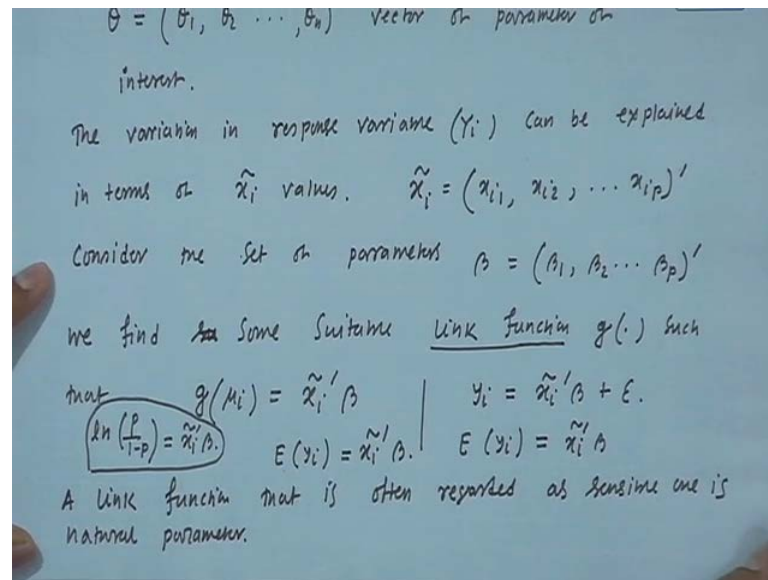 θ = (θ1, θ2 ⋯, θn) vector of parameter of
interest.
The variation in response variable (Yi) can be explained
in terms of x̃i values. x̃i = (xi1, xi2, ... xip)'
Consider the set of parameters β = (β1, β2 ⋯ βp)'
we find some suitable link function g(·) such
that g(μi) = x̃i'β | yi = x̃i'β + ε.
ln (p/1-p) = x̃i'β. E(yi) = x̃i'β. | E(yi) = x̃i'β
A link function that is often regarded as sensible one is
natural parameter.